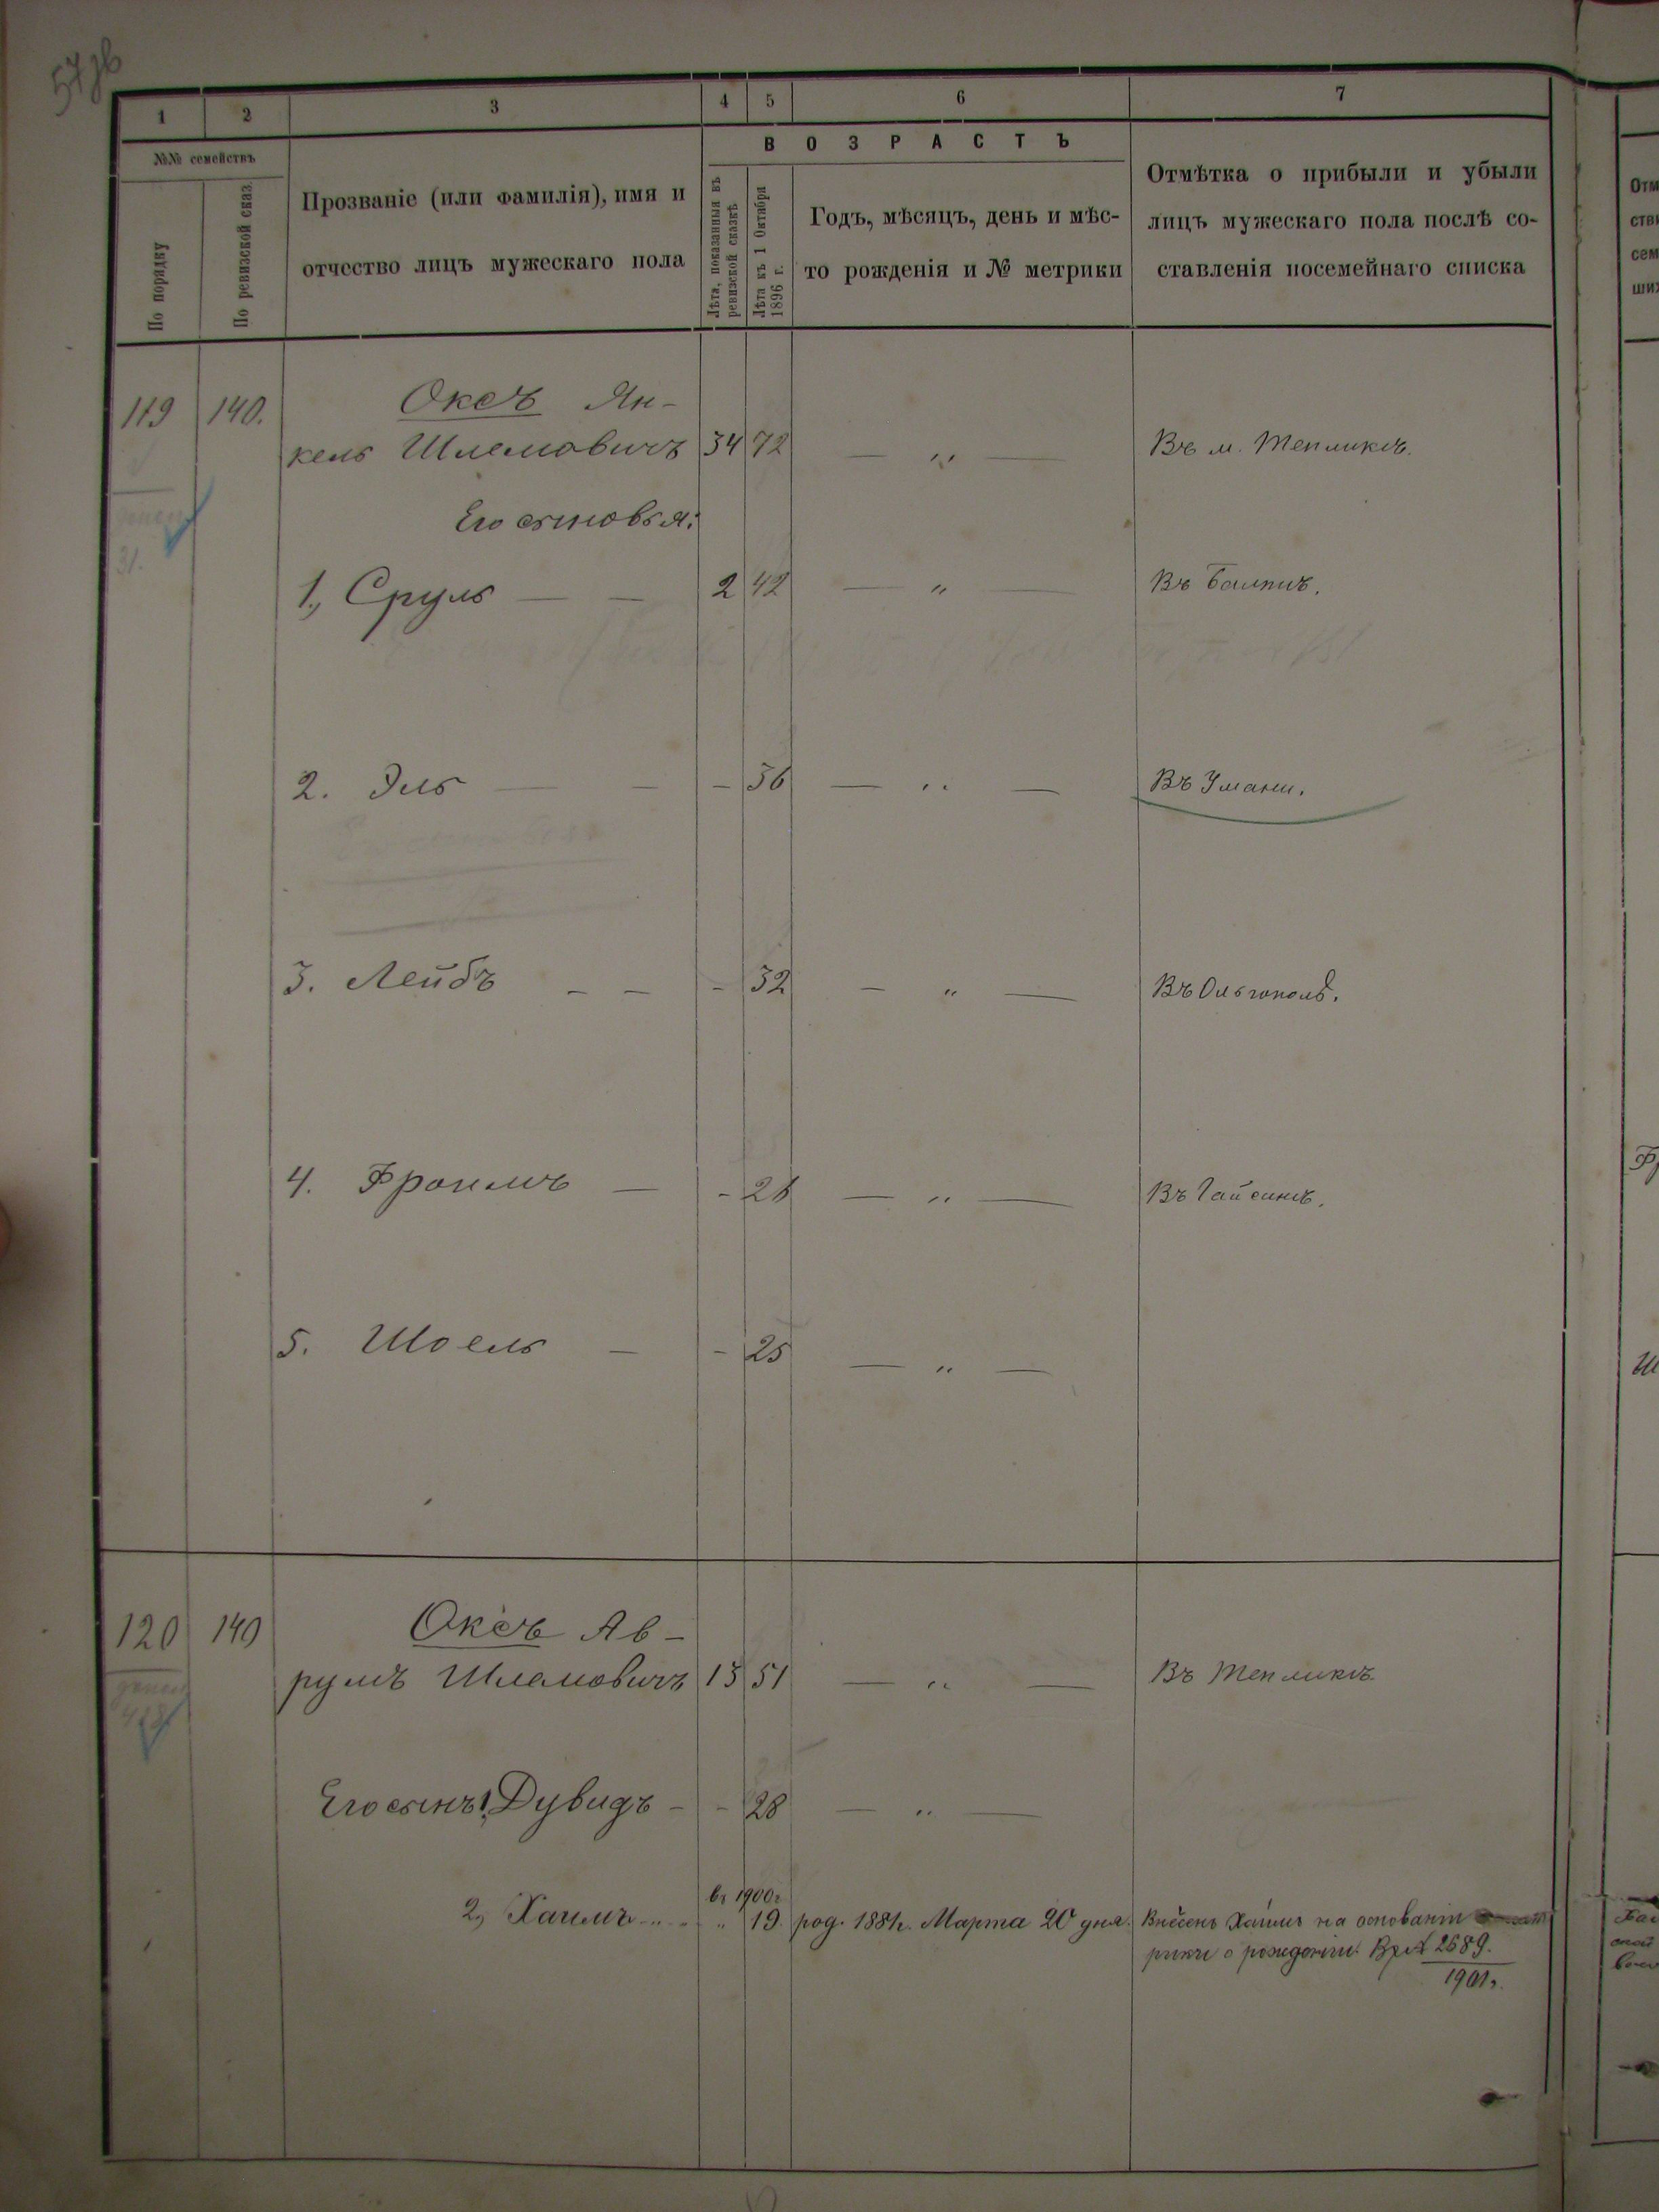 1 2 3 4 5 6 7
№№ семействъ
По порядку
По ревизской сказ.
Прозваніе (или фамилія), имя и
отчество лицъ мужескаго пола
ВОЗРАСТЪ
Лѣта, показанныя въ
ревизской сказкѣ
Лѣта къ 1 Октября
1896 г.
Годъ, мѣсяцъ, день и мѣс-
то рожденія и № метрики
Отмѣтка о прибыли и убыли
лицъ мужескаго пола послѣ со-
ставленія посемейнаго списка
119 140. Оксъ Ян-
кель Шлемовичъ 34 72 — „ — Въ м. Тепликѣ.
Его сыновья:
1., Сруль — — 2 42 — „ — Въ Балтѣ.
2. Эль — — - 36 — „ — Въ Умани.
3. Лейбъ — — - 32 — „ — Въ Ольгополѣ.
4. Фроимъ — - 28 — „ — Въ Гайсинѣ.
5. Шоель — - 25 — „ —
120 140 Оксъ Ав-
румъ Шлемовичъ 13 51 — „ — Въ Тепликѣ.
Его сынъ 1, Дувидъ - - 28 — „ —
въ 1900 г.
2, Хаимъ „ 19. род. 1881 г. Марта 20 дня. Внесенъ Хаимъ на основаніи
рики о рожденіи. Вх № 2689.
1901 г.